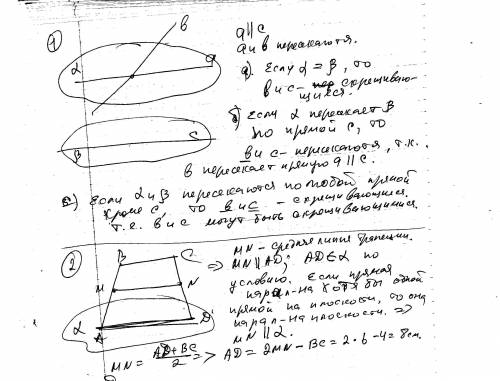 1
a ∥ c
a и b пересекаются.
а). Если α = β, то
b и с - скрещиваю-
щиеся.
б) Если α пересекает β
по прямой с, то
b и с - пересекаются, т.к.
b пересекает прямую a ∥ c.
в) Если α и β пересекаются по любой прямой
кроме с, то b и с - скрещивающиеся.
т.е. b и с могут быть скрещивающимися.
α
a
b
β
c
2
MN - средняя линия трапеции.
=> MN ∥ AD; AD ∈ α по
условию. Если прямая
парал-на хотя бы одной
прямой на плоскости, то она
парал-на плоскости. =>
MN ∥ α.
B C
M N
α A D
MN = AD+BC/2 => AD = 2MN - BC = 2·6-4 = 8см.